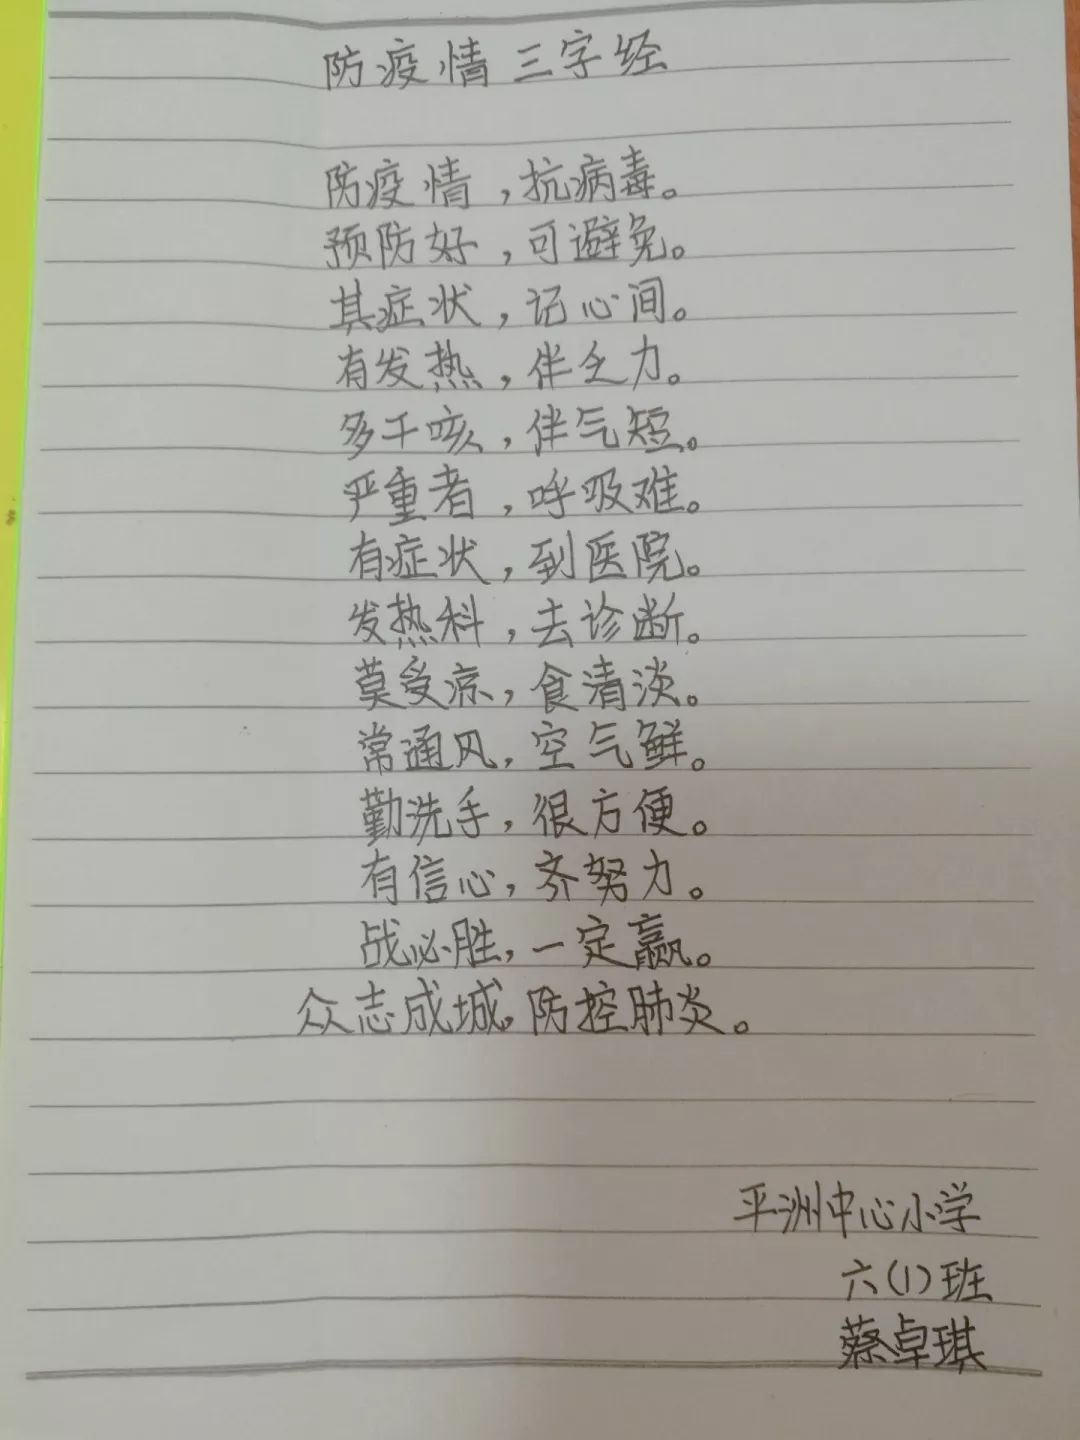 防疫情三字经
防疫情,抗病毒。
预防好,可避免。
其症状,记心间。
有发热,伴乏力。
多干咳,伴气短。
严重者,呼吸难。
有症状,到医院。
发热科,去诊断。
莫受凉,食清淡。
常通风,空气鲜。
勤洗手,很方便。
有信心,齐努力。
战必胜,一定赢。
众志成城,防控肺炎。
平洲中心小学
六(1)班
蔡卓琪